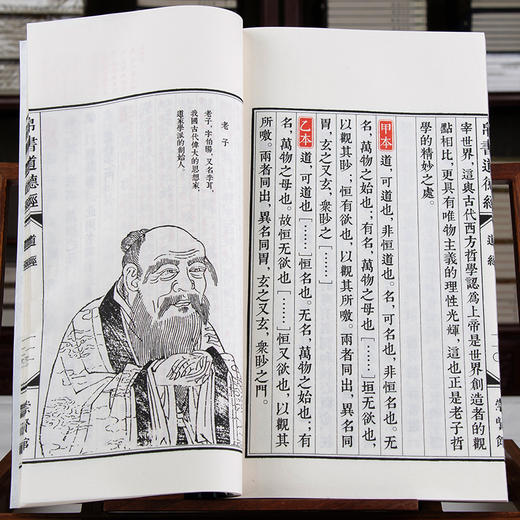 帛書道德經 道經 一〇 崇賢館
宰世界,這與古代西方哲學認爲上帝是世界創造者的觀
點相比,更具有唯物主義的理性光輝,這也正是老子哲
學的精妙之處。
甲本 道,可道也,非恒道也。名,可名也,非恒名也。无
名,萬物之始也;有名,萬物之母也〔……〕恒无欲也,
以觀其眇;恒有欲也,以觀其所噭。兩者同出,異名同
胃,玄之又玄,衆眇之〔……〕
乙本 道,可道也〔……〕恒名也。无名,萬物之始也;有
名,萬物之母也。故恒无欲也〔……〕恒又欲也,以觀其
所噭。兩者同出,異名同胃,玄之又玄,衆眇之門。
老子
老子,字伯陽,又名李耳,
我國古代偉大的思想家,
道家學派的創始人。
帛書道德經 道經 崇賢館